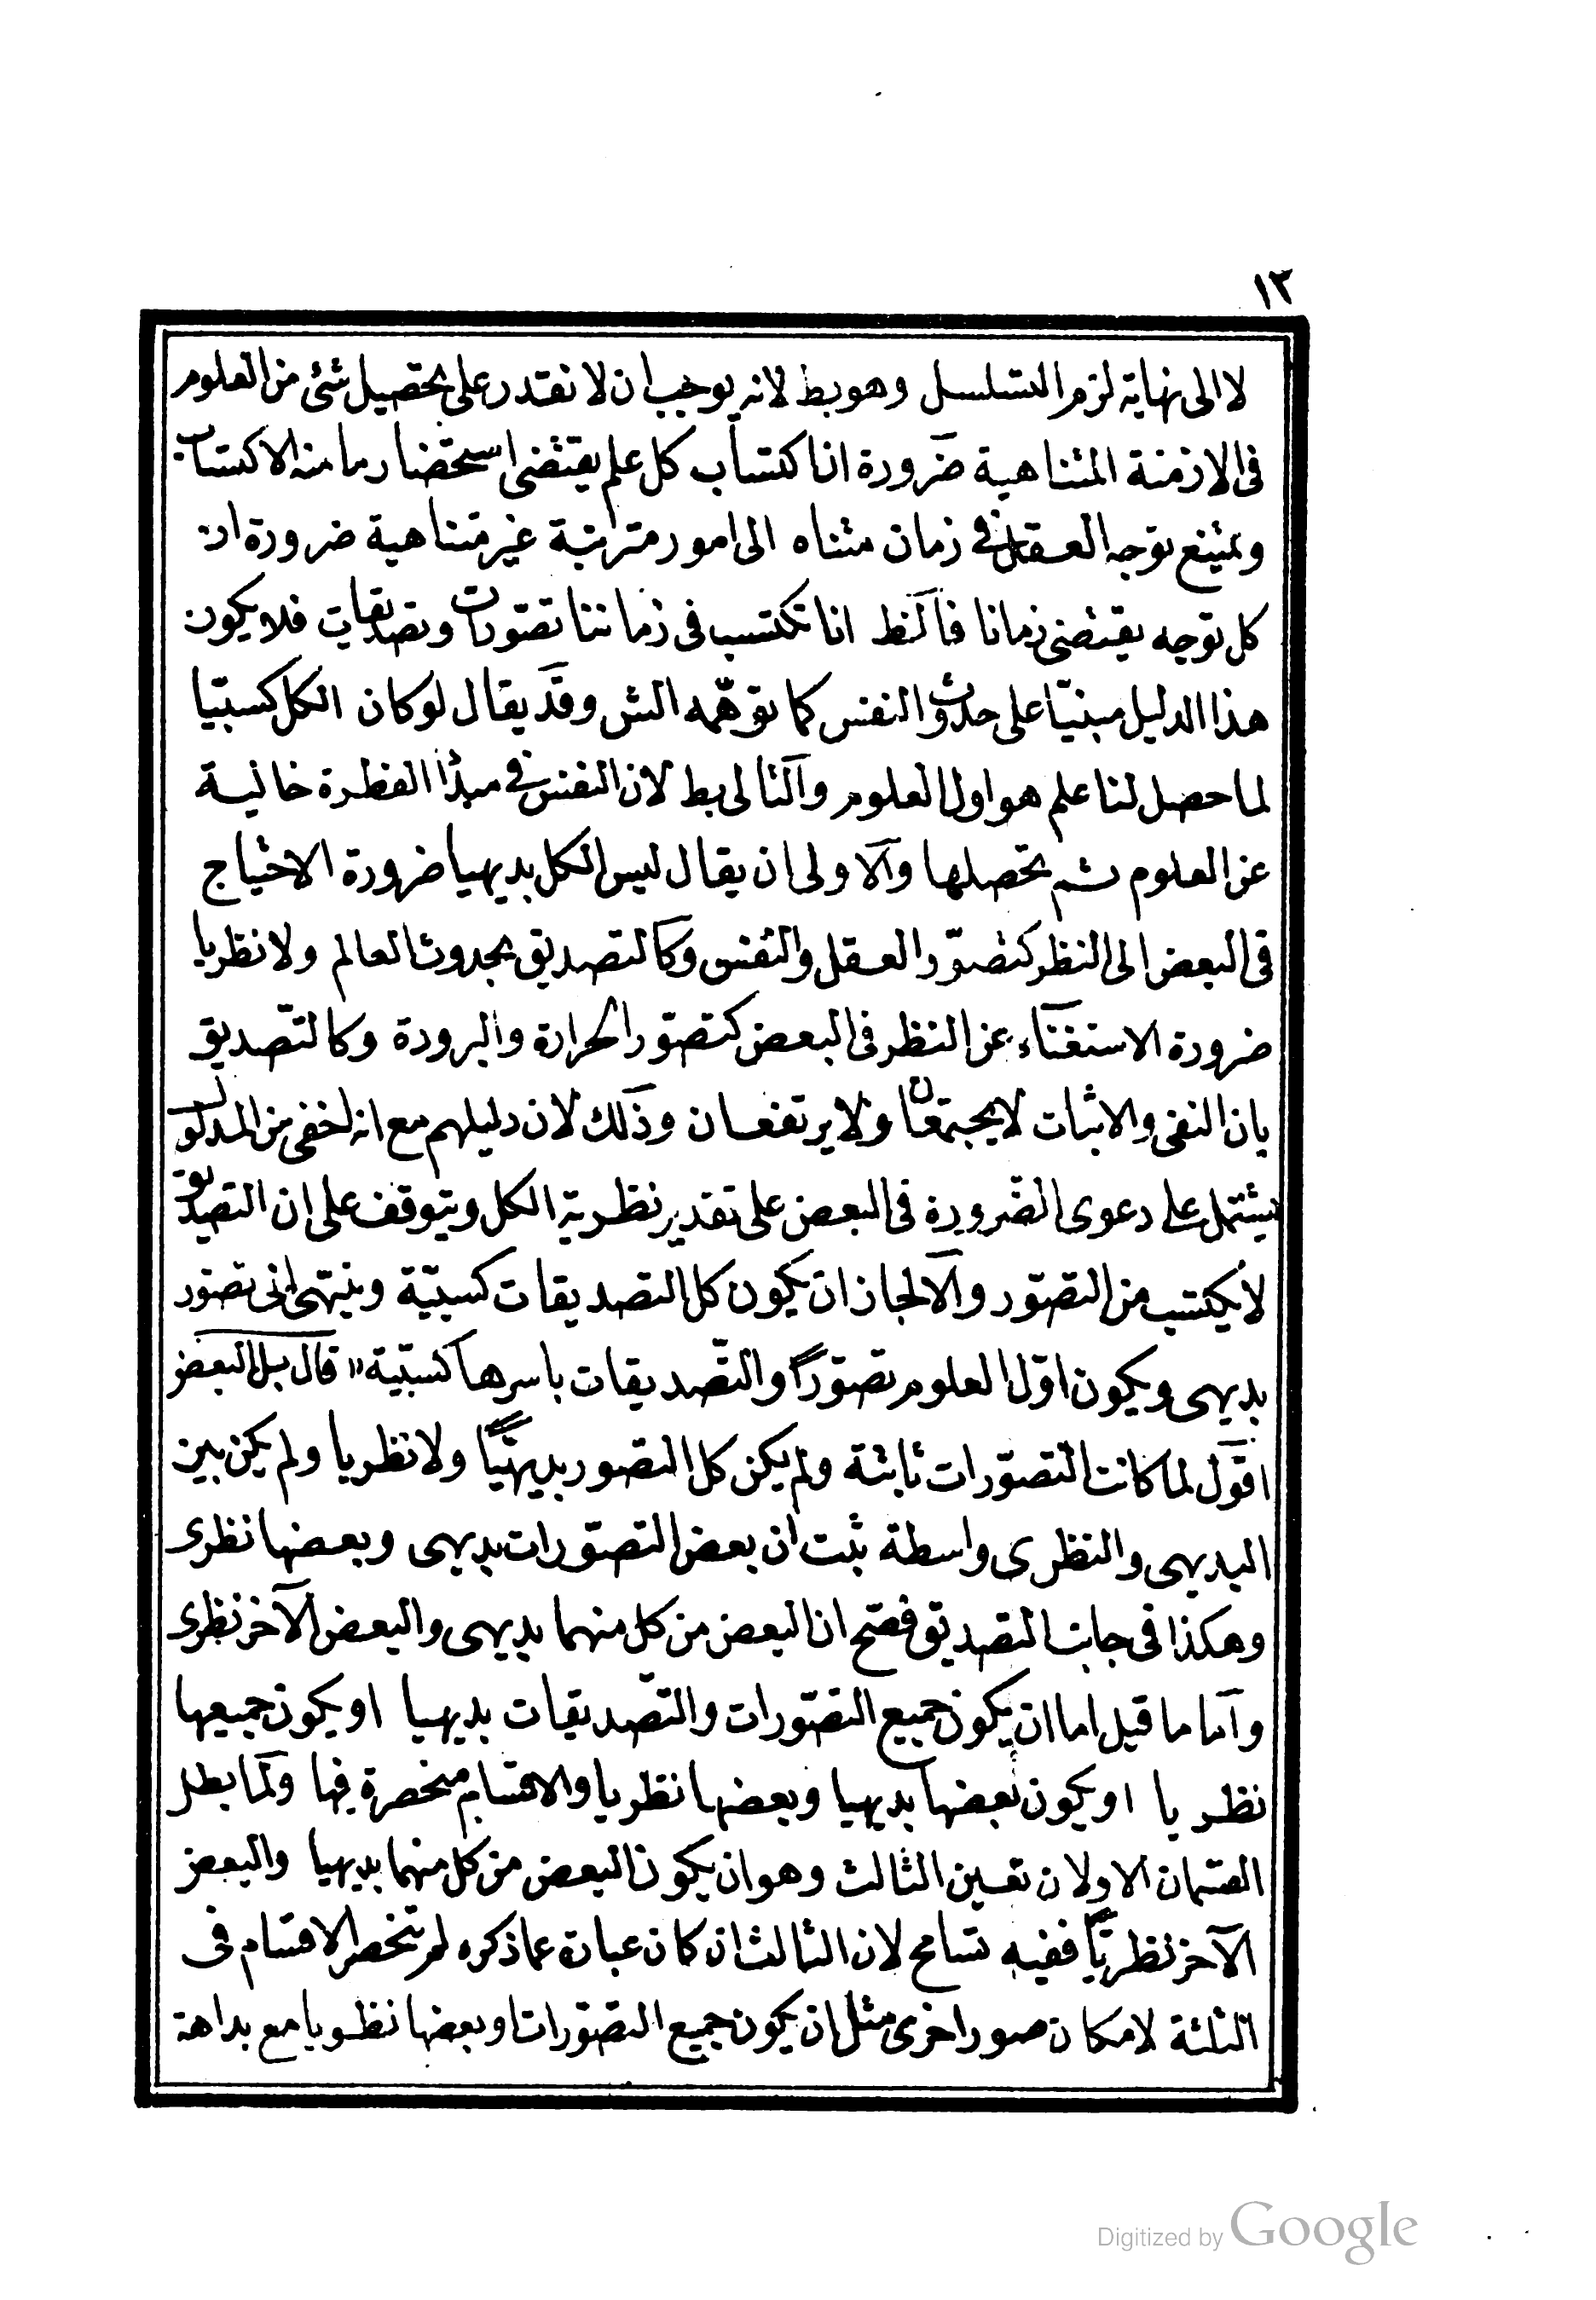 ١٣
لا الى نهاية لزم التسلسل وهو بط لانه يوجب ان لا نقتدر على تحصيل شئ من العلوم
فى الازمنة المتناهية ضرورة ان اكتساب كل علم يقتضى استحضار ما منه الاكتساب
ويمتنع توجه العقل فى زمان متناه الى امور مترتبة غير متناهية ضرورة ان
كل توجه يقتضى زمانا فالنظ انا نكتسب فى زماننا تصورات وتصديقات فلا يكون
هذا الدليل مبنيّا على حدوث النفس كما توهّمه الش وقد يقال لو كان الكل كسبيّا
لما حصل لنا علم هو اول العلوم والتالى بط لان النفس فى مبدأ الفطرة خالية
عن العلوم ثم تحصلها والاولى ان يقال ليس الكل بديهيا ضرورة الاحتياج
فى البعض الى النظر كتصوّر العقل والنفس وكالتصديق بحدوث العالم ولا نظريا
ضرورة الاستغناء عن النظر فى البعض كتصوّر الحرارة والبرودة وكالتصديق
بان النفى والاثبات لا يجتمعان ولا يرتفعان وذلك لان دليلهم مع انه اخفى من المدلول
يشتمل على دعوى الضّرورة فى البعض على تقدير نظرية الكل ويتوقف على ان التصديق
لا يكتسب من التصوّر والا لجاز ان يكون كل التصديقات كسبيّة وينتهى الى تصوّر
بديهى ويكون اوّل العلوم تصوّرًا والتّصديقات باسرها كسبيّة" قال بل البعض
اقول لما كانت التصوّرات ثابتة ولم يكن كل التصور بديهيًّا ولا نظريا ولم يكن بين
البديهى والنظرى واسطة ثبت ان بعض التصوّرات بديهى وبعضها نظرى
وهكذا فى جانب التصديق فصّح ان البعض من كل منهما بديهى والبعض الآخر نظرى
واما ما قيل اما ان يكون جميع التصوّرات والتّصديقات بديهيا او يكون جميعها
نظريا او يكون بعضها بديهيا وبعضها نظريا والاقسام منحصرة فيها ولما بطل
القسمان الاولان تعين الثالث وهو ان يكون البعض من كل منهما بديهيا والبعض
الآخر نظريًّا ففيه تسامح لان الثالث ان كان عبارة عما ذكره لم تنحصر الاقسام فى
الثلثة لامكان صور اخرى مثل ان يكون جميع التصوّرات او بعضها نظريا مع بداهة
Digitized by Google